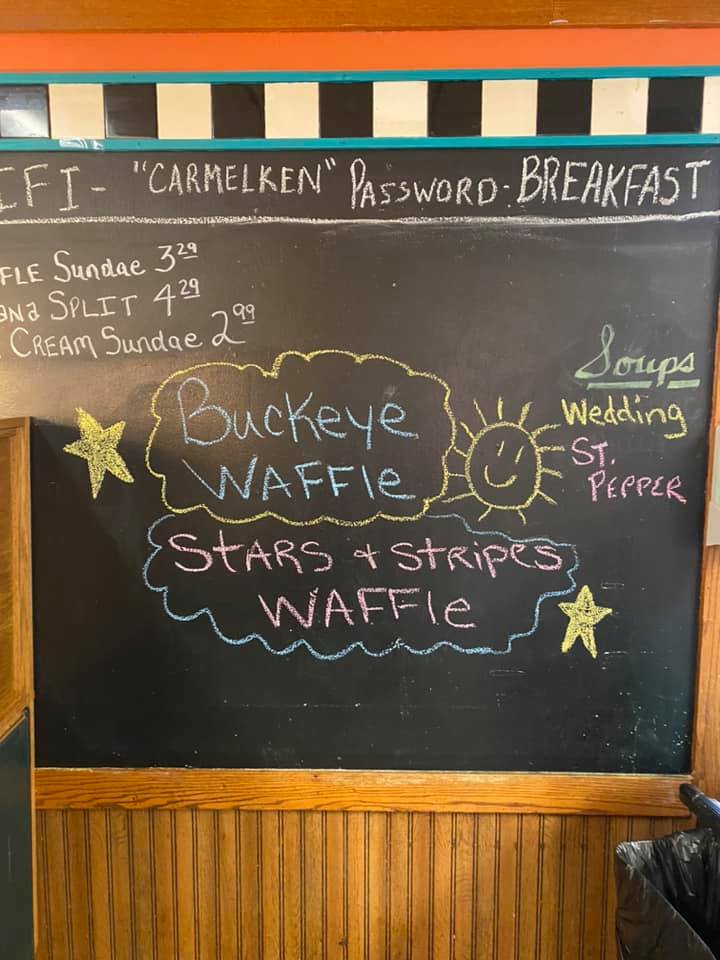 IFI - "CARMELKEN" PASSWORD: BREAKFAST
FLE Sundae 3 29
ana SPLIT 4 29
CREAM Sundae 2 99
Buckeye
WAFFle
STARS & STRIPES
WAFFle
Soups
Wedding
ST.
PEPPER